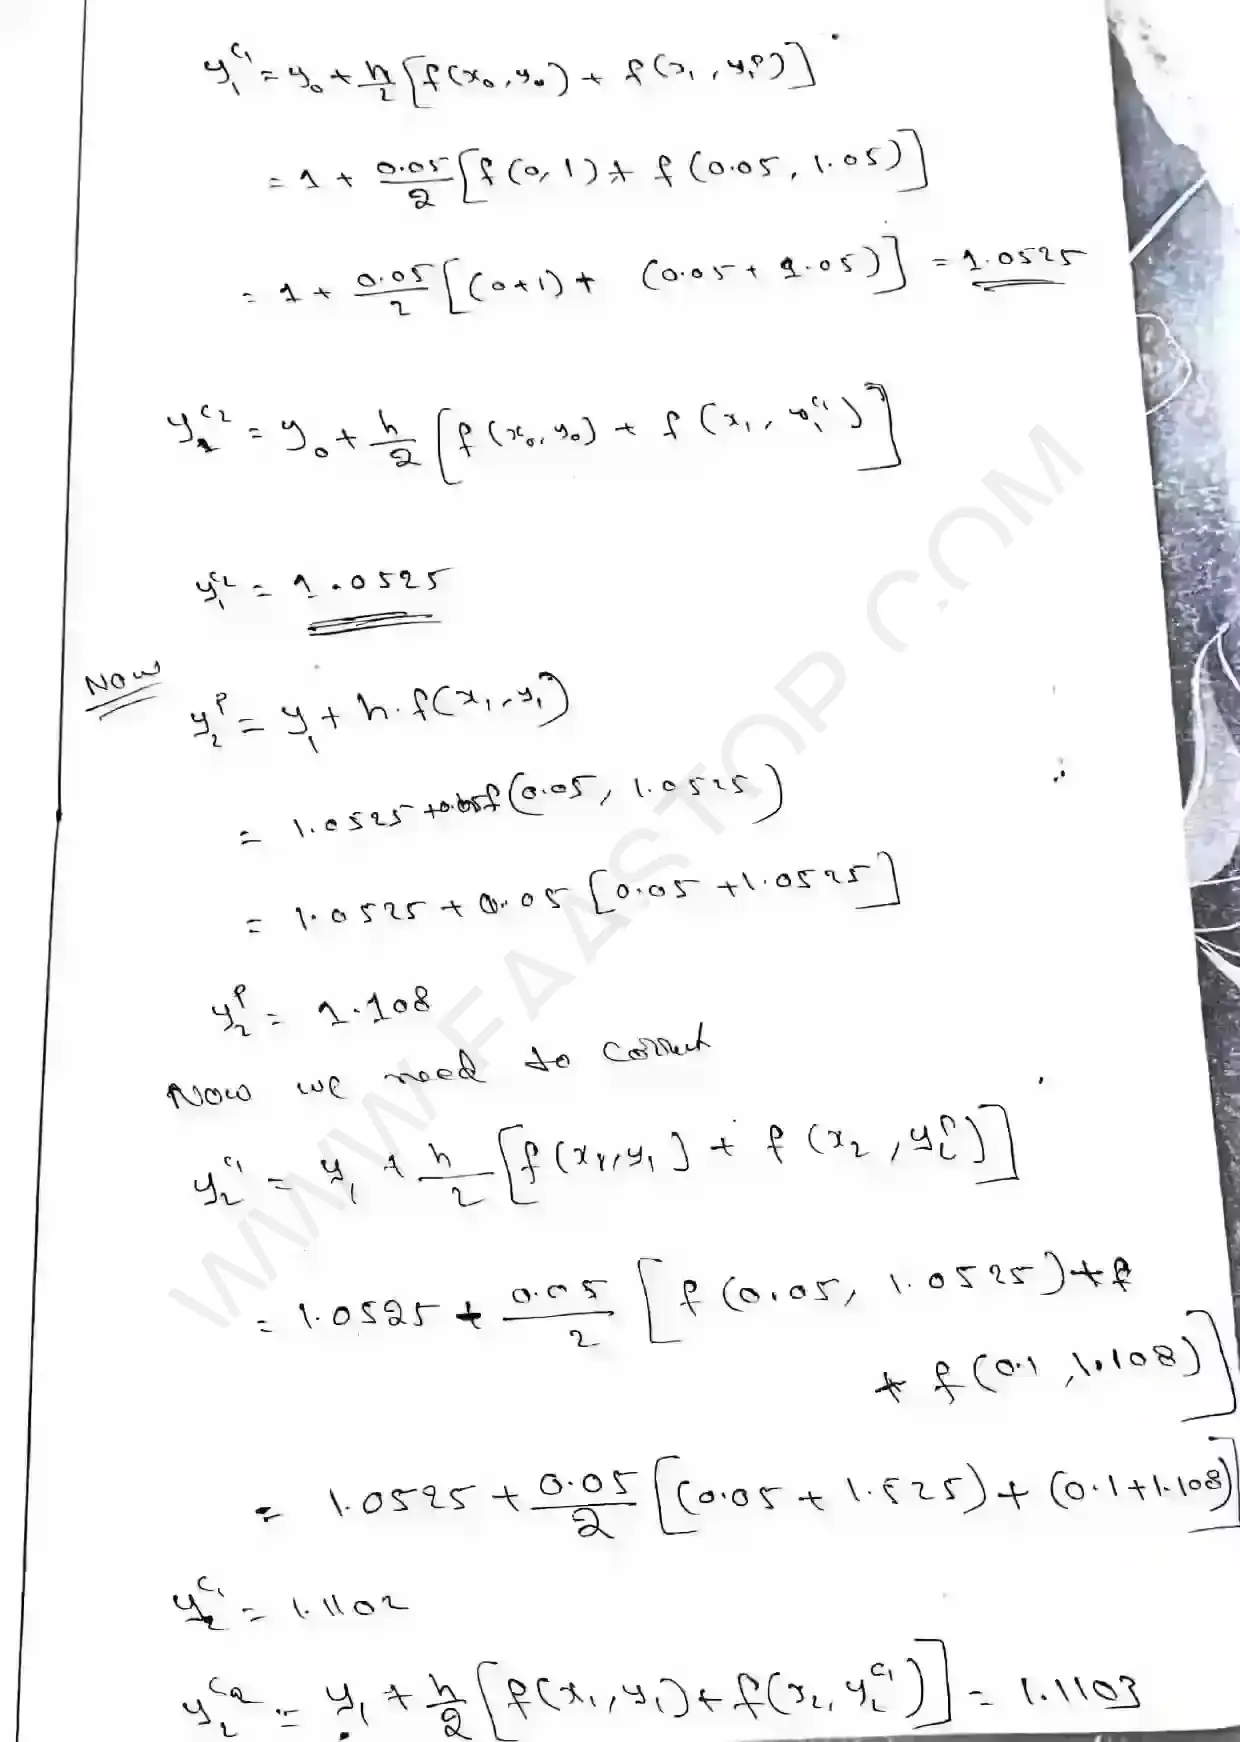 y₁^c₁ = y₀ + h/2 [f(x₀, y₀) + f(x₁, y₁^p)]
= 1 + 0.05/2 [f(0, 1) + f(0.05, 1.05)]
= 1 + 0.05/2 [(0+1) + (0.05 + 1.05)] = 1.0525
y₁^c₂ = y₀ + h/2 [f(x₀, y₀) + f(x₁, y₁^c₁)]
y₁^c₂ = 1.0525
Now
y₂^p = y₁ + h·f(x₁, y₁)
= 1.0525 + 0.05f(0.05, 1.0525)
= 1.0525 + 0.05 [0.05 + 1.0525]
y₂^p = 1.108
Now we need to correct
y₂^c₁ = y₁ + h/2 [f(x₁, y₁) + f(x₂, y₂^p)]
= 1.0525 + 0.05/2 [f(0.05, 1.0525) + f
+ f(0.1, 1.108)]
= 1.0525 + 0.05/2 [(0.05 + 1.525) + (0.1 + 1.108)]
y₂^c₁ = 1.1102
y₂^c₂ = y₁ + h/2 [f(x₁, y₁) + f(x₂, y₂^c₁)] = 1.1103
WWW.FAASTOP.COM